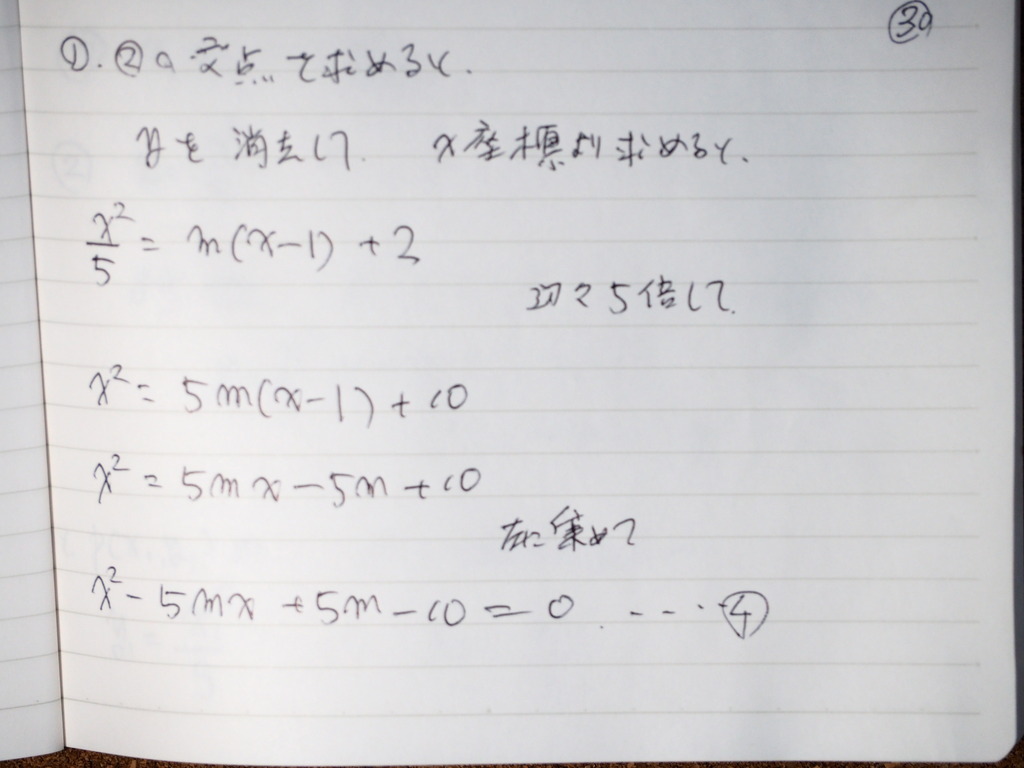 ㊴
①.②の交点を求めると.
yを消去して. x座標より求めると、
x²/5 = m(x-1) + 2
辺々5倍して.
x² = 5m(x-1) + 10
x² = 5mx - 5m + 10
左に集めて
x² - 5mx + 5m - 10 = 0 .---④